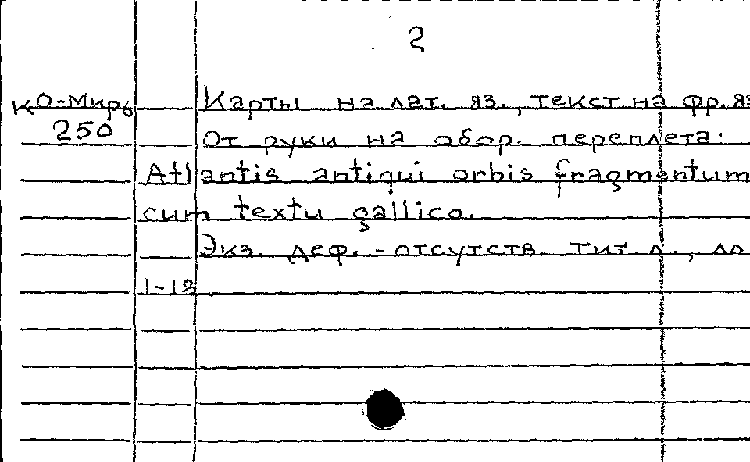 2
КО-Миръ Карты на лат. яз., текст на фр. яз
250 От руки на обор. переплета:
Atlantis antiqui orbis fragmentum
cum textu gallico.
Экз. деф. - отсутств. тит. л., лл
1-12